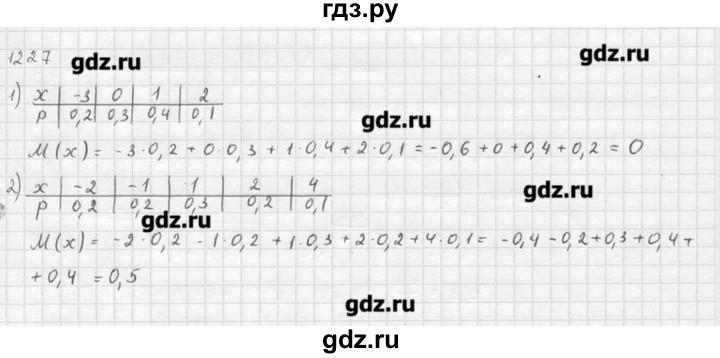 гдз.ру
1227
gdz.ru
gdz.ru
1) x | -3 | 0 | 1 | 2
p | 0,2 | 0,3 | 0,4 | 0,1
gdz.ru
M(x) = -3·0,2 + 0·0,3 + 1·0,4 + 2·0,1 = -0,6 + 0 + 0,4 + 0,2 = 0
2) x | -2 | -1 | 1 | 2 | 4
gdz.ru
p | 0,2 | 0,2 | 0,3 | 0,2 | 0,1
gdz.ru
M(x) = -2·0,2 - 1·0,2 + 1·0,3 + 2·0,2 + 4·0,1 = -0,4 - 0,2 + 0,3 + 0,4 +
+ 0,4 = 0,5
gdz.ru
gdz.ru